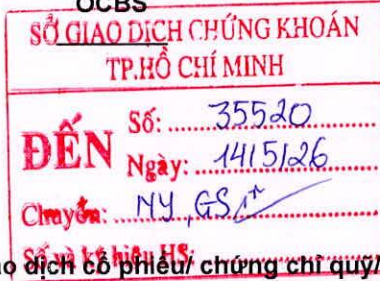 OCBS
SỞ GIAO DỊCH CHỨNG KHOÁN
TP.HỒ CHÍ MINH
ĐẾN
Số: 35520
Ngày: 14/5/26
Chuyển: NY, GS
Số và ký hiệu HS:
ao dịch cổ phiếu/ chứng chỉ quỹ/